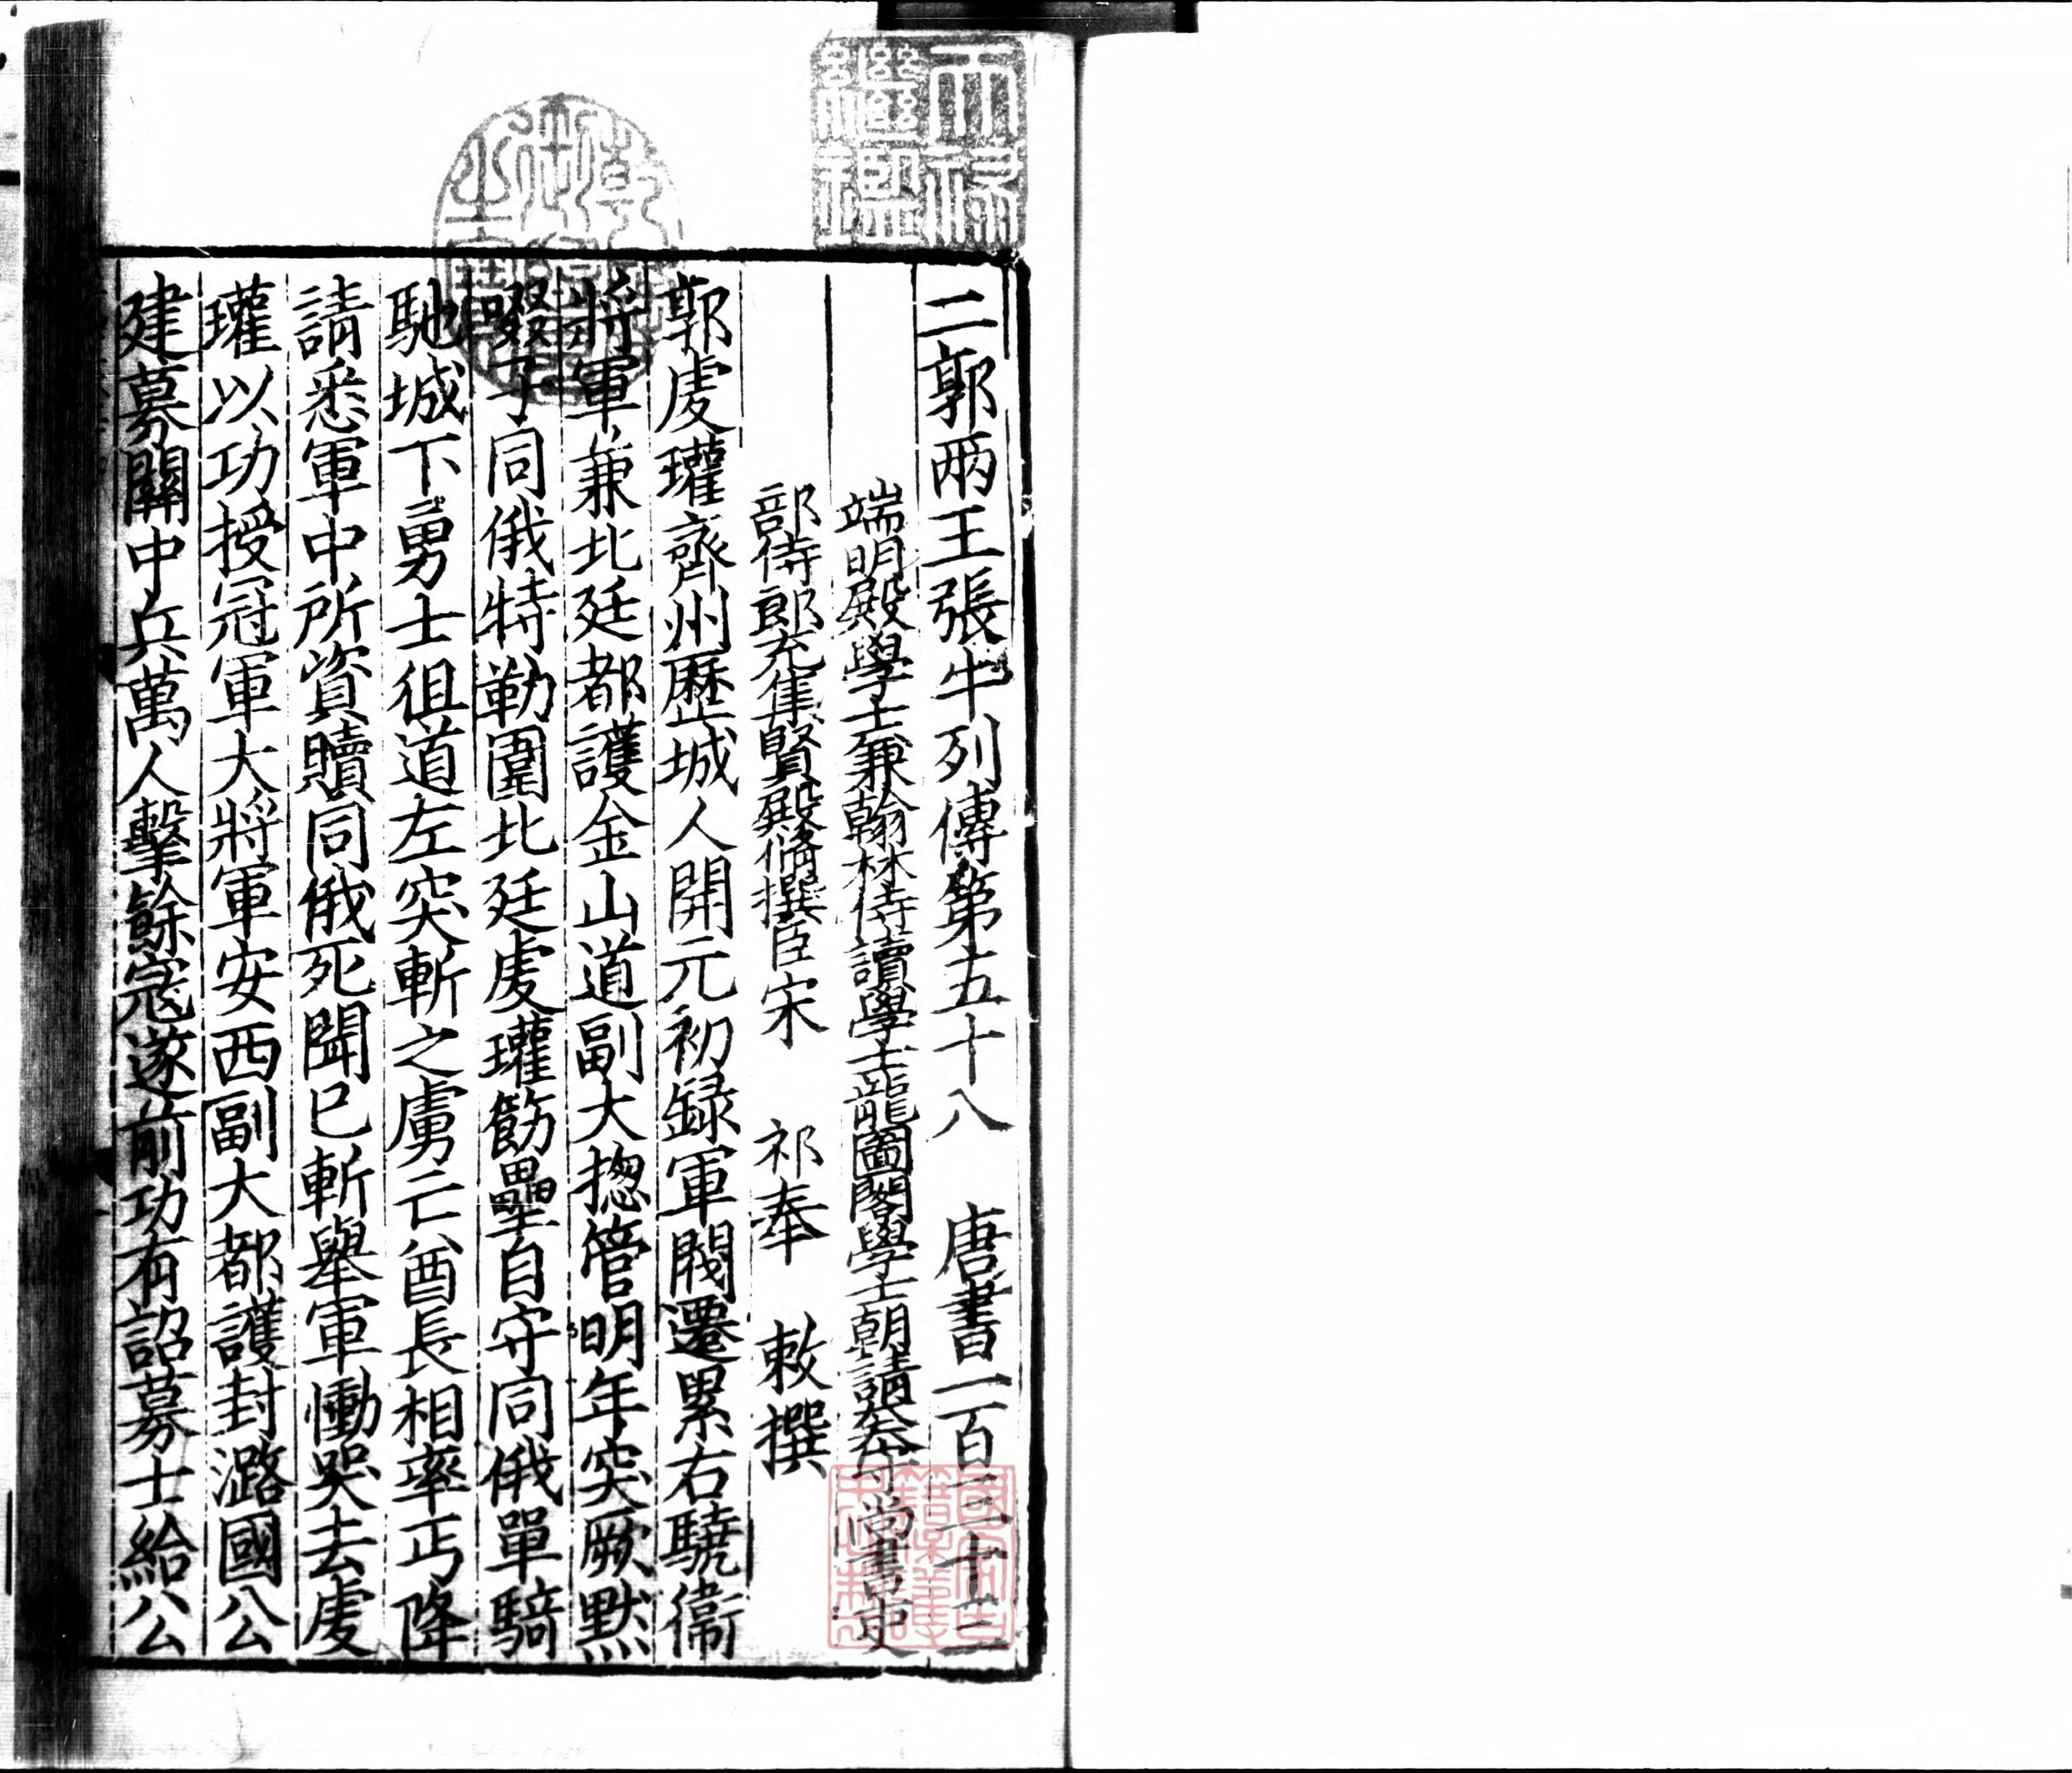 二郭兩王張牛列傳第五十八 唐書一百三十三
端明殿學士兼翰林侍讀學士龍圖閣學士朝請大夫守尚書吏
部侍郎充集賢殿脩撰臣宋 祁奉 敕撰
郭虔瓘齊州歷城人開元初録軍閥遷累右驍衞
將軍兼北廷都護金山道副大揔管明年突厥黙
啜子同俄特勒圍北廷虔瓘飭壘自守同俄單騎
馳城下勇士徂道左突斬之虜亡酋長相率丐降
請悉軍中所資贖同俄死聞已斬舉軍慟哭去虔
瓘以功授冠軍大將軍安西副大都護封潞國公
建募關中兵萬人擊餘寇遂前功有詔募士給公
天祿繼鑑
乾隆御覽之寶